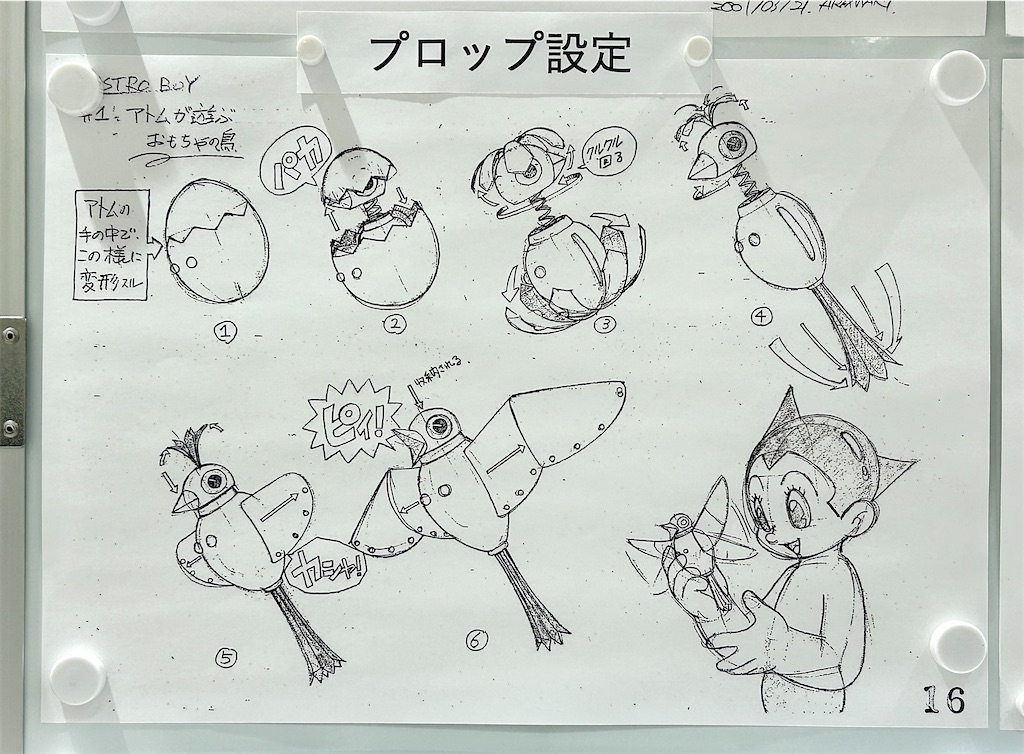 2001/03/21. ARAMAKI.
プロップ設定
ASTRO BOY
#1: アトムが遊ぶ
おもちゃの鳥
アトムの
手の中で、
この様に
変形スル
①
パカ
②
クルクル
回る
③
④
カシャッ!
⑤
収納される.
ピィ!
⑥
16